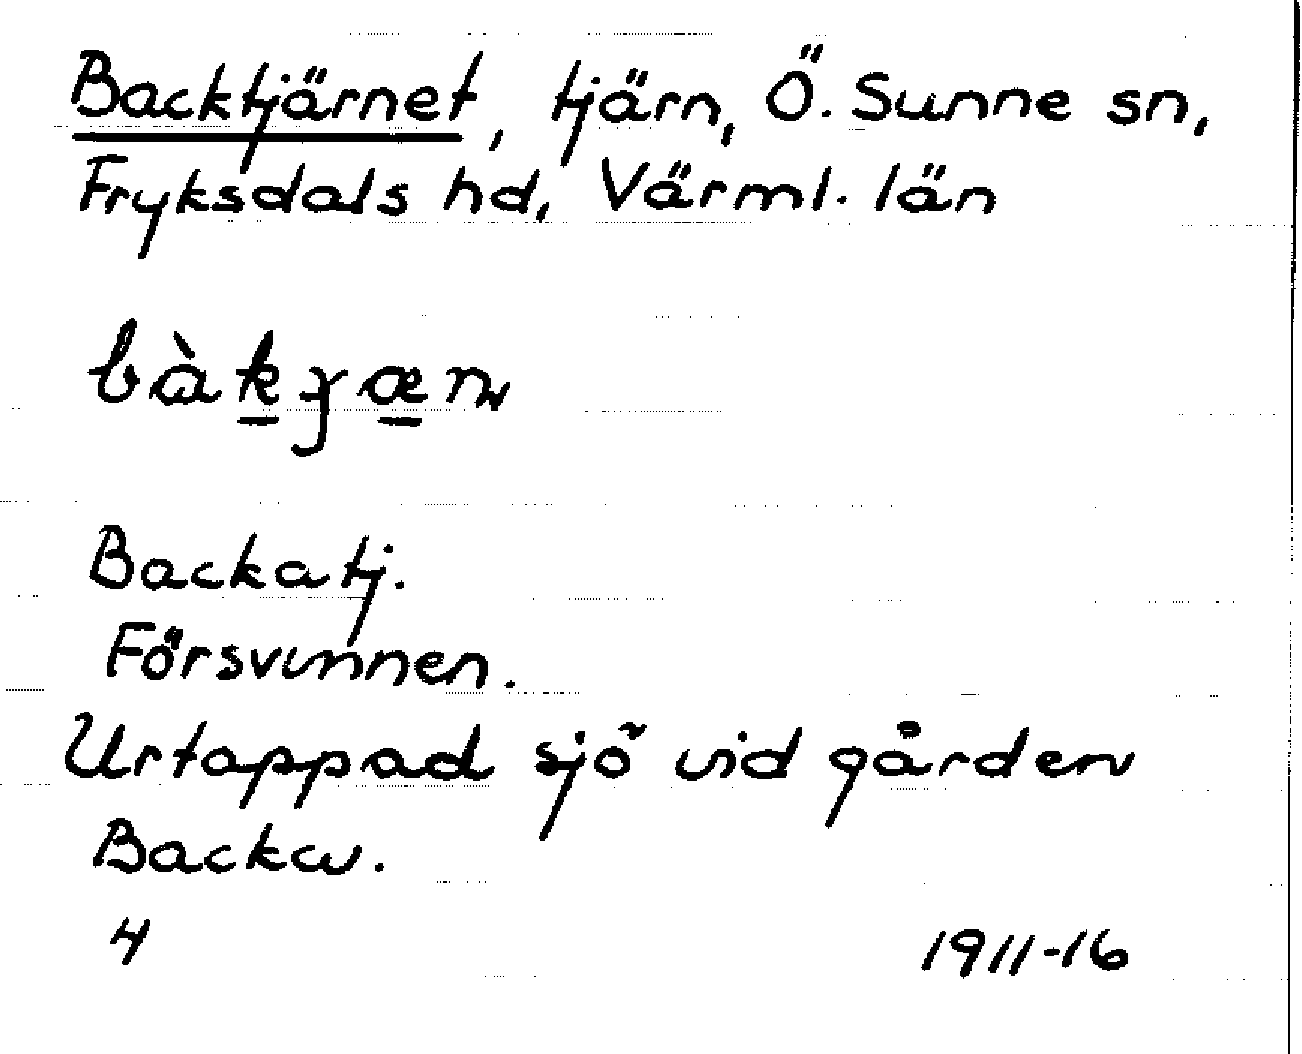 Backtjärnet, tjärn, Ö. Sunne sn,
Fryksdals hd, Värml. län
bàkɟæn
Backatj.
Försvunnen.
Urtappad sjö vid gården
Backa.
4 1911-16